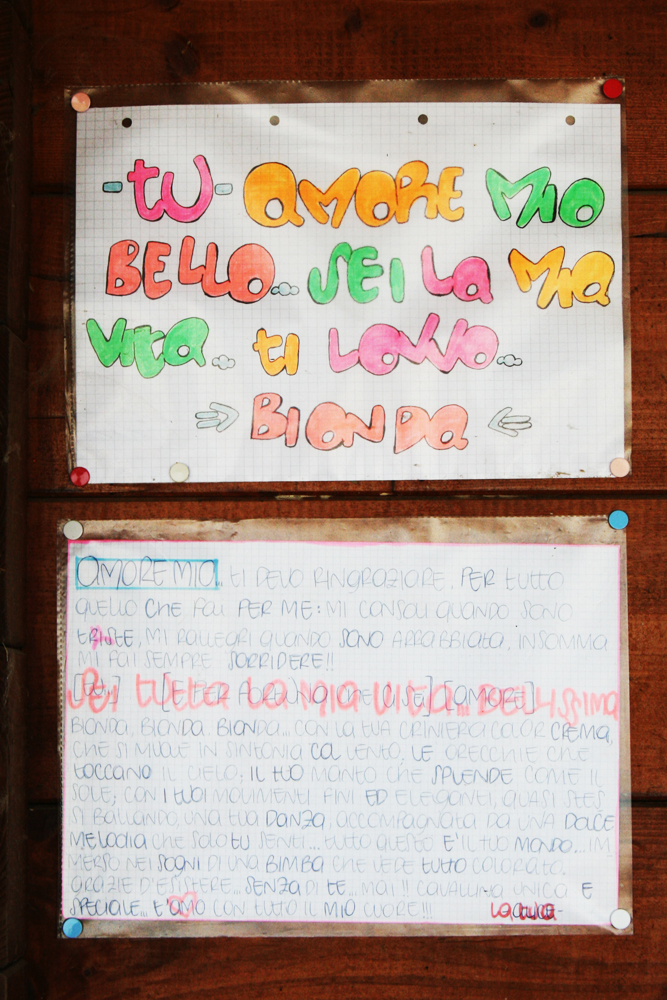 -TU- AMORE MIO
BELLO... SEI LA MIA
VITA... ti LOVVO...
BIONDA
AMORE MIA... TI DEVO RINGRAZIARE, PER tutto
QUELLO CHE FAI PER ME: MI CONSOLI QUANDO SONO
tRIStE, MI RALLEGRI QUANDO SONO ARRABBIAtA, INSOMMA
MI FAI SEMPRE SORRIDERE!!
[E PER FORTUNA CHE CI SEI] [AMORE]
SEI tuttA LA MIA VItA... BELLISSIMA
BIONDA, BIONDA, BIONDA... CON LA TUA CRINIERA COLOR CREMA,
CHE SI MUOVE IN SINTONIA COL VENTO, LE ORECCHIE CHE
tOCCANO IL CIELO; IL tUO MANTO CHE SPLENDE COME IL
SOLE; CON I tUOI MOVIMENTI FINI ED ELEGANTI, QUASI StES
SI BALLANDO, UNA TUA DANZA, ACCOMPAGNATA DA UNA DOLCE
MELODIA CHE SOLO tU SENTI... TUTTO QUESTO E'IL tUO MONDO... IM
MERSO NEI SOGNI DI UNA BIMBA CHE VEDE tUttO COLORATO.
GRAZIE D'ESISTERE... SENZA DI TE... MAI!! CAVALLINA UNICA E
SPECIALE... t'AMO CON TUTTO IL MIO CUORE!!!